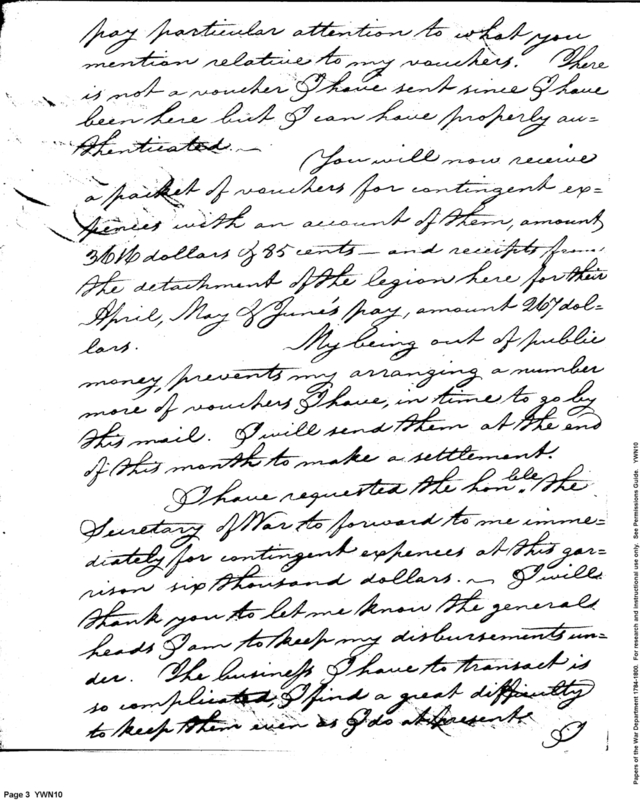 pay particular attention to what you
mention relative to my vouchers. There
is not a voucher I have sent since I have
been here but I can have properly au=
thenticated. ~
You will now receive
a packet of vouchers for contingent ex=
pences with an account of them, amount,
3616 dollars & 85 cents — and receipts from
the detachment of the legion here for their
April, May & June's pay, amount 267 dol=
lars. My being out of public
money, prevents my arranging a number
more of vouchers I have, in time to go by
this mail. I will send them at the end
of this month to make a settlement.
I have requested the hon.ble the
Secretary of War to forward to me imme=
diately for contingent expences at this gar=
rison six thousand dollars. ~ I will
thank you to let me know the general
heads I am to keep my disbursements un=
der. The business I have to transact is
so complicated, I find a great difficulty
to keep them even as I do at present.
I
Page 3 YWN10
Papers of the War Department 1784-1800. For research and instructional use only. See Permissions Guide. YWN10